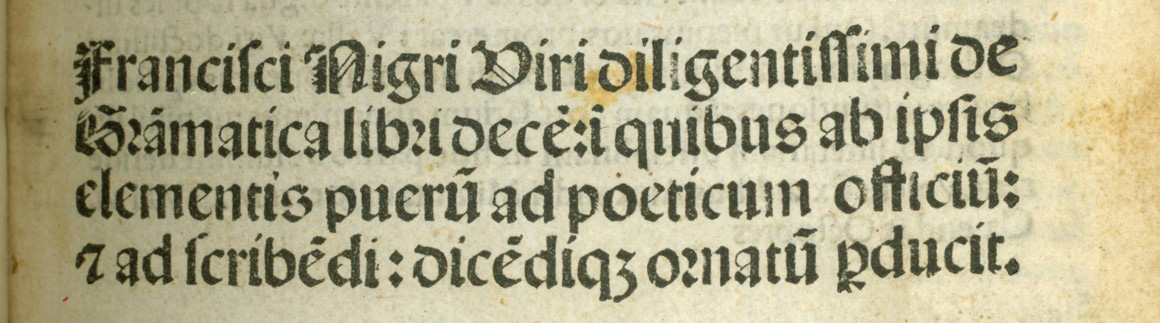 Franciſci Nigri Viri diligentiſſimi de
Grãmatica libri decẽ:ĩ quibus ab ipſis
elementis puerũ ad poeticum officiũ:
⁊ ad ſcribẽdi: dicẽdiqꝫ ornatũ ꝑducit.